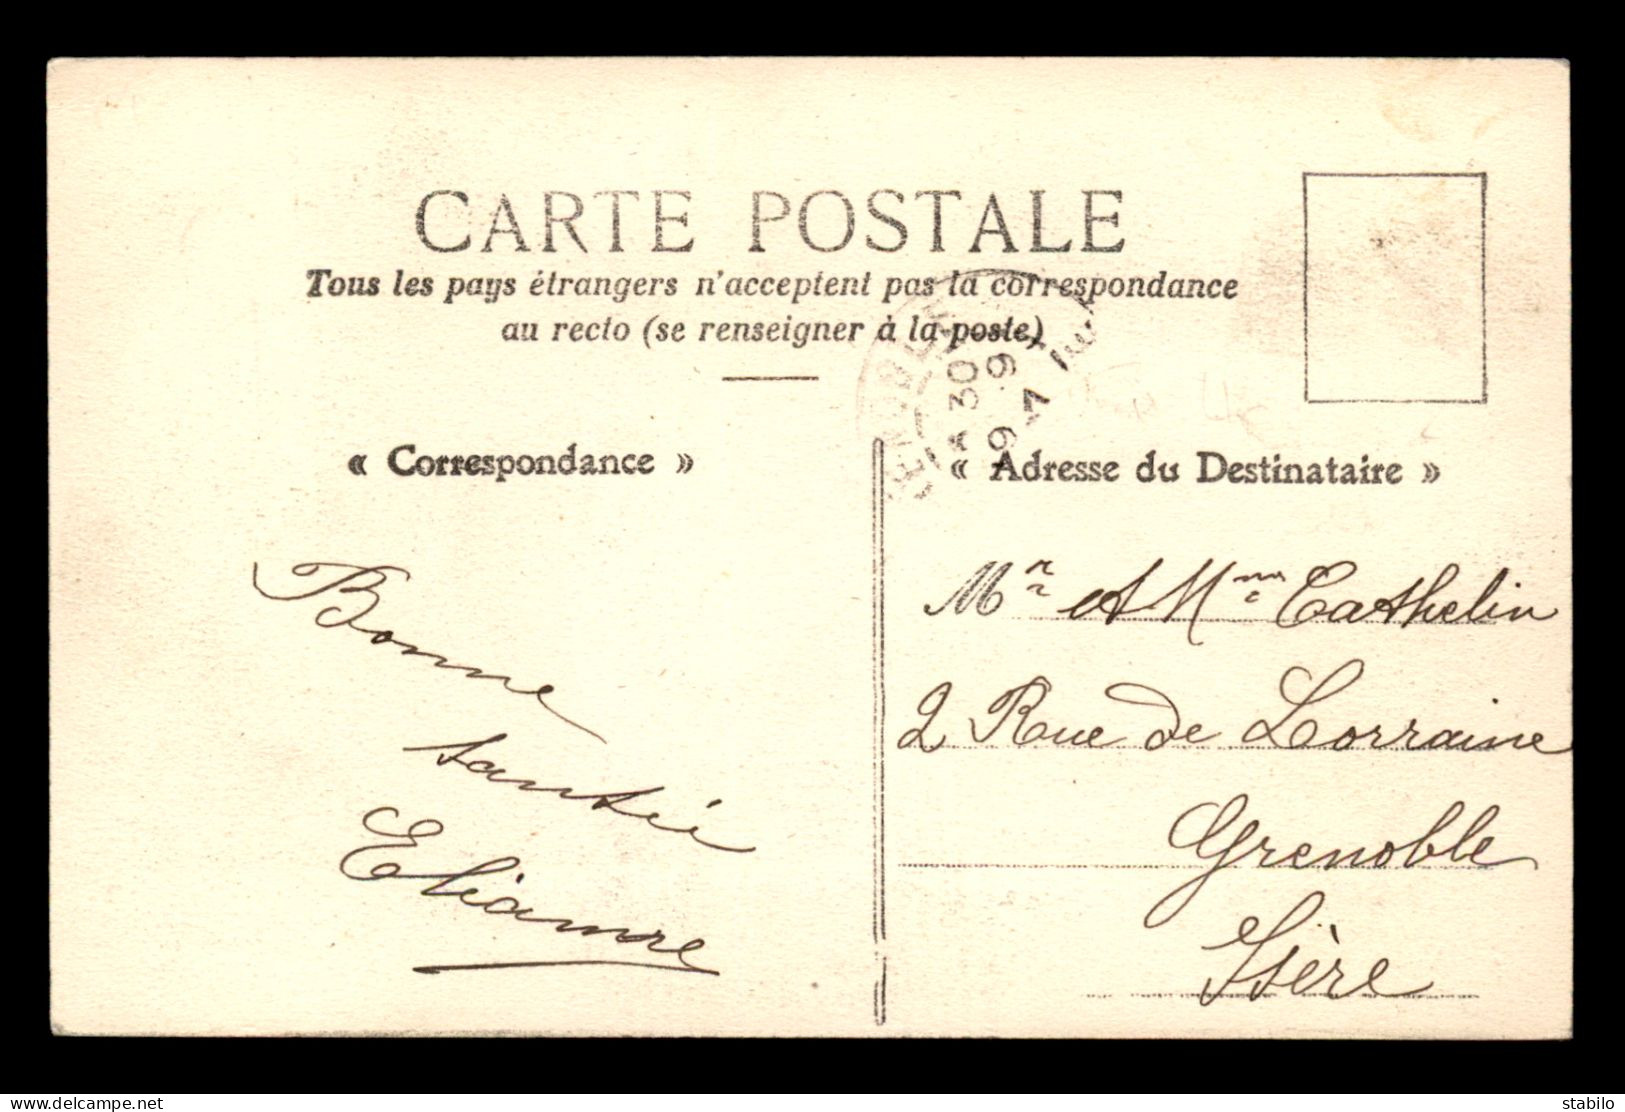 CARTE POSTALE
Tous les pays étrangers n'acceptent pas la correspondance
au recto (se renseigner à la poste)
« Correspondance »
Bonne
santée
Elianne
« Adresse du Destinataire »
Mr et Mme Cathelin
2 Rue de Lorraine
Grenoble
Isère
30
9 -7
delcampe.net
stabilo